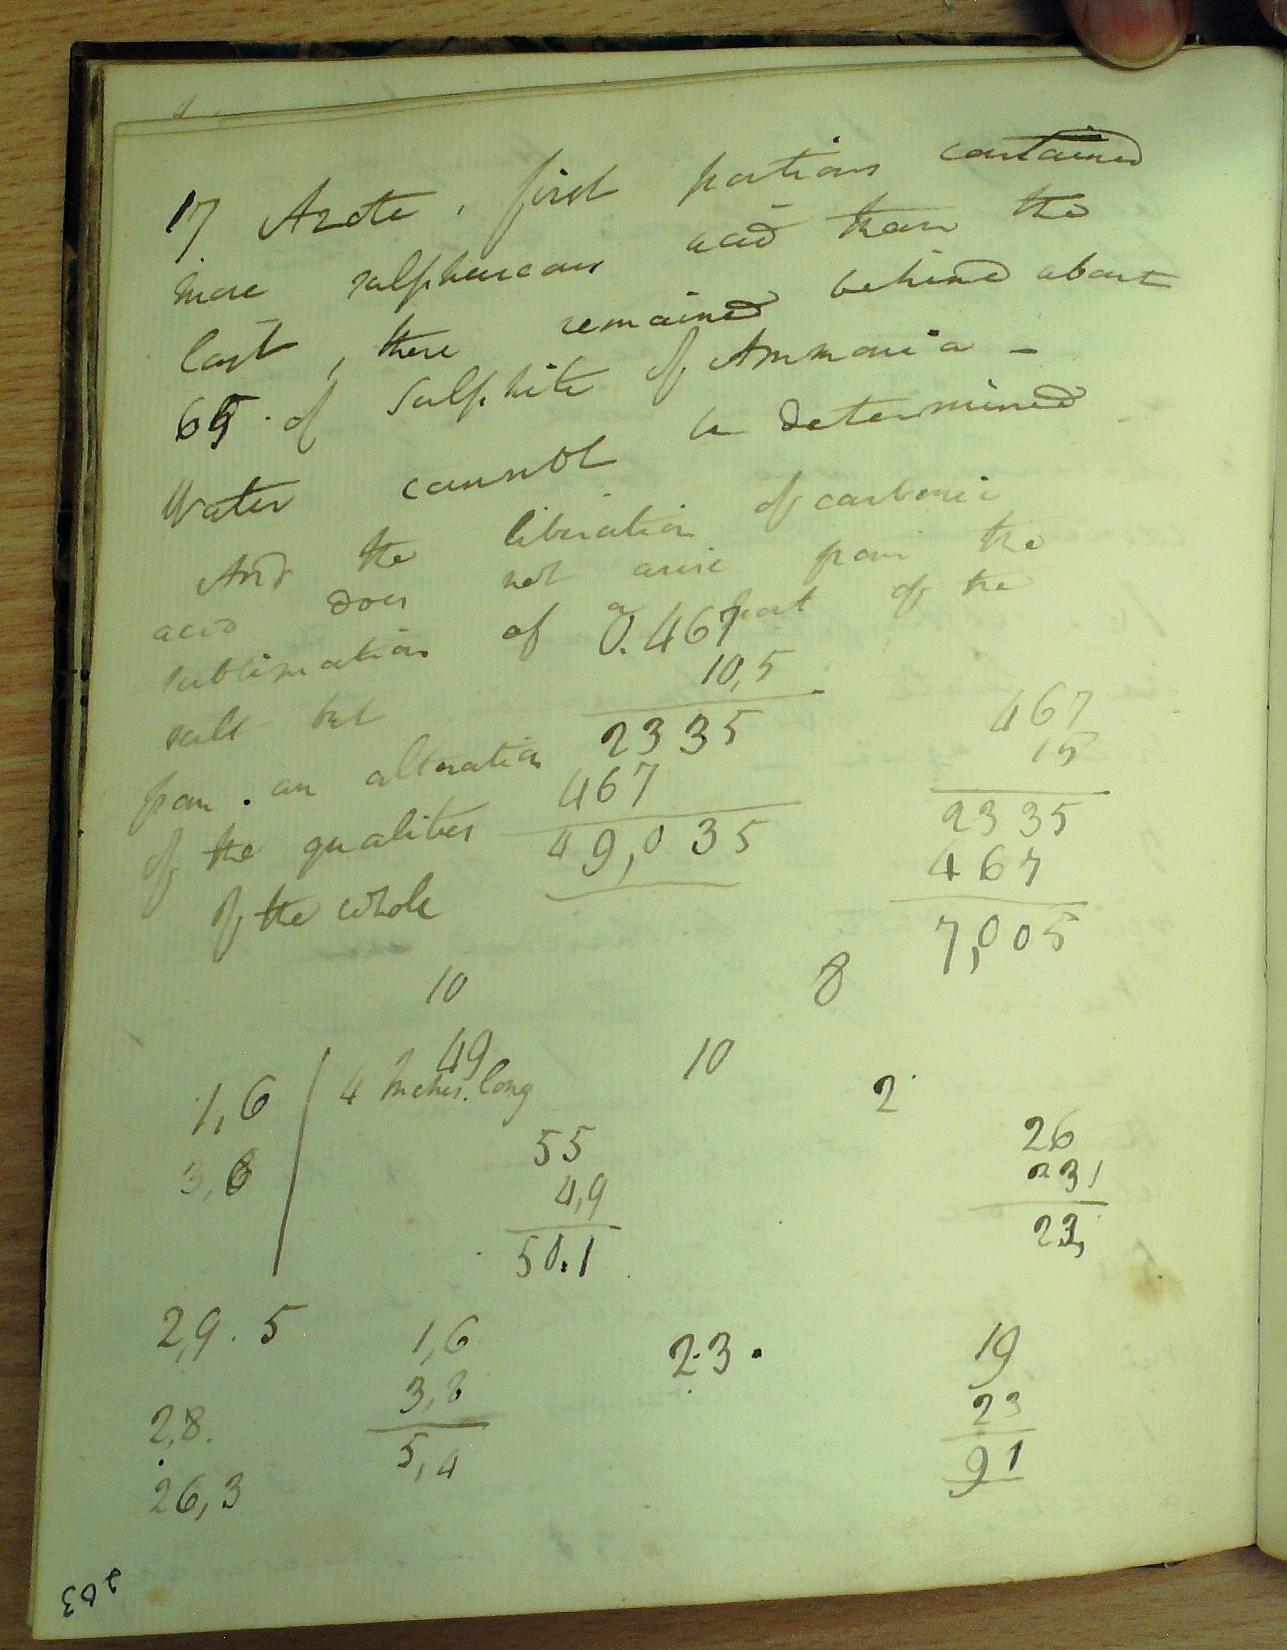 17 Azote, first portions contained
more sulphureous acid than the
last, there remained behind about
65. of Sulphite of Ammonia -
Water cannot be determined
And the liberation of carbonic
acid does not arise from the
sublimation of a part of the
salt but
from. an alteration
of the qualities
of the whole
0.467
10,5
2335
467
49,035
467
15
2335
467
7,005
10
8
49
10
1,6
4 Inches. long
2
3,8
55
4,9
50.1
26
231
23,
29.5
1,6
3,8
5,4
23.
19
23
91
2,8.
26,3
203